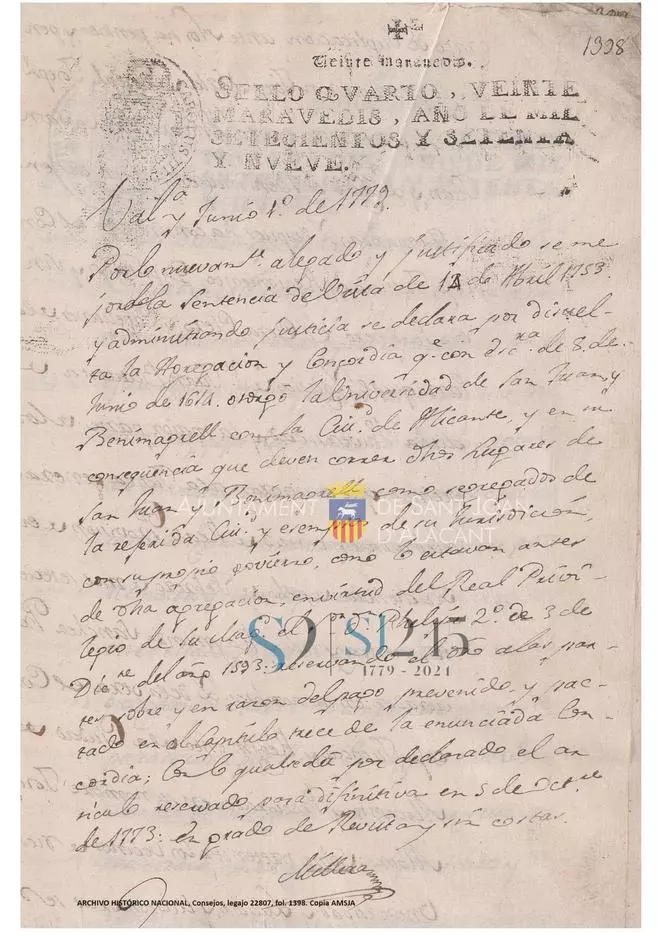 1398
Veinte maravedis.
SELLO QVARTO, VEINTE
MARAVEDIS, AÑO DE MIL
SETECIENTOS Y SETENTA
Y NVEVE.
Val.ª y Junio 1.º de 1779.
Por lo nuevam.te alegado y justificado se me
jora la Sentencia de Vista de 12 de Abril 1753.
y administrando justicia se declara por disuel-
ta la Agregacion y Concordia q.e con dic.ra de 8. de
Junio de 1614. otorgó la Universidad de San Juan, y
Benimagrell con la Ciu.d de Alicante, y en su
consequencia que deven correr dhos Lugares de
San Juan y Benimagrell como segregados de
la referida Ciu.d y esemptos de su Jurisdicion,
con su propio govierno, como lo estavan antes
de dha agregacion, en virtud del Real Privi-
legio de su Mag.d el D.n Phelipe 2.º de 3 de
Dic.re del año 1593: reservando el dro a las par-
tes sobre y en razon del pago prevenido, y pac-
tado en el Capitulo trece de la enunciada Con-
cordia; Con lo qual se dá por declarado el ar
ticulo reservado para difinitiva en 5 de Oct.re
de 1773: en grado de Revista y sin costas.
AJUNTAMENT DE SANT JOAN
D'ALACANT
SJ 245
1779 - 2024
ARCHIVO HISTÓRICO NACIONAL, Consejos, legajo 22807, fol. 1398. Copia AMSJA